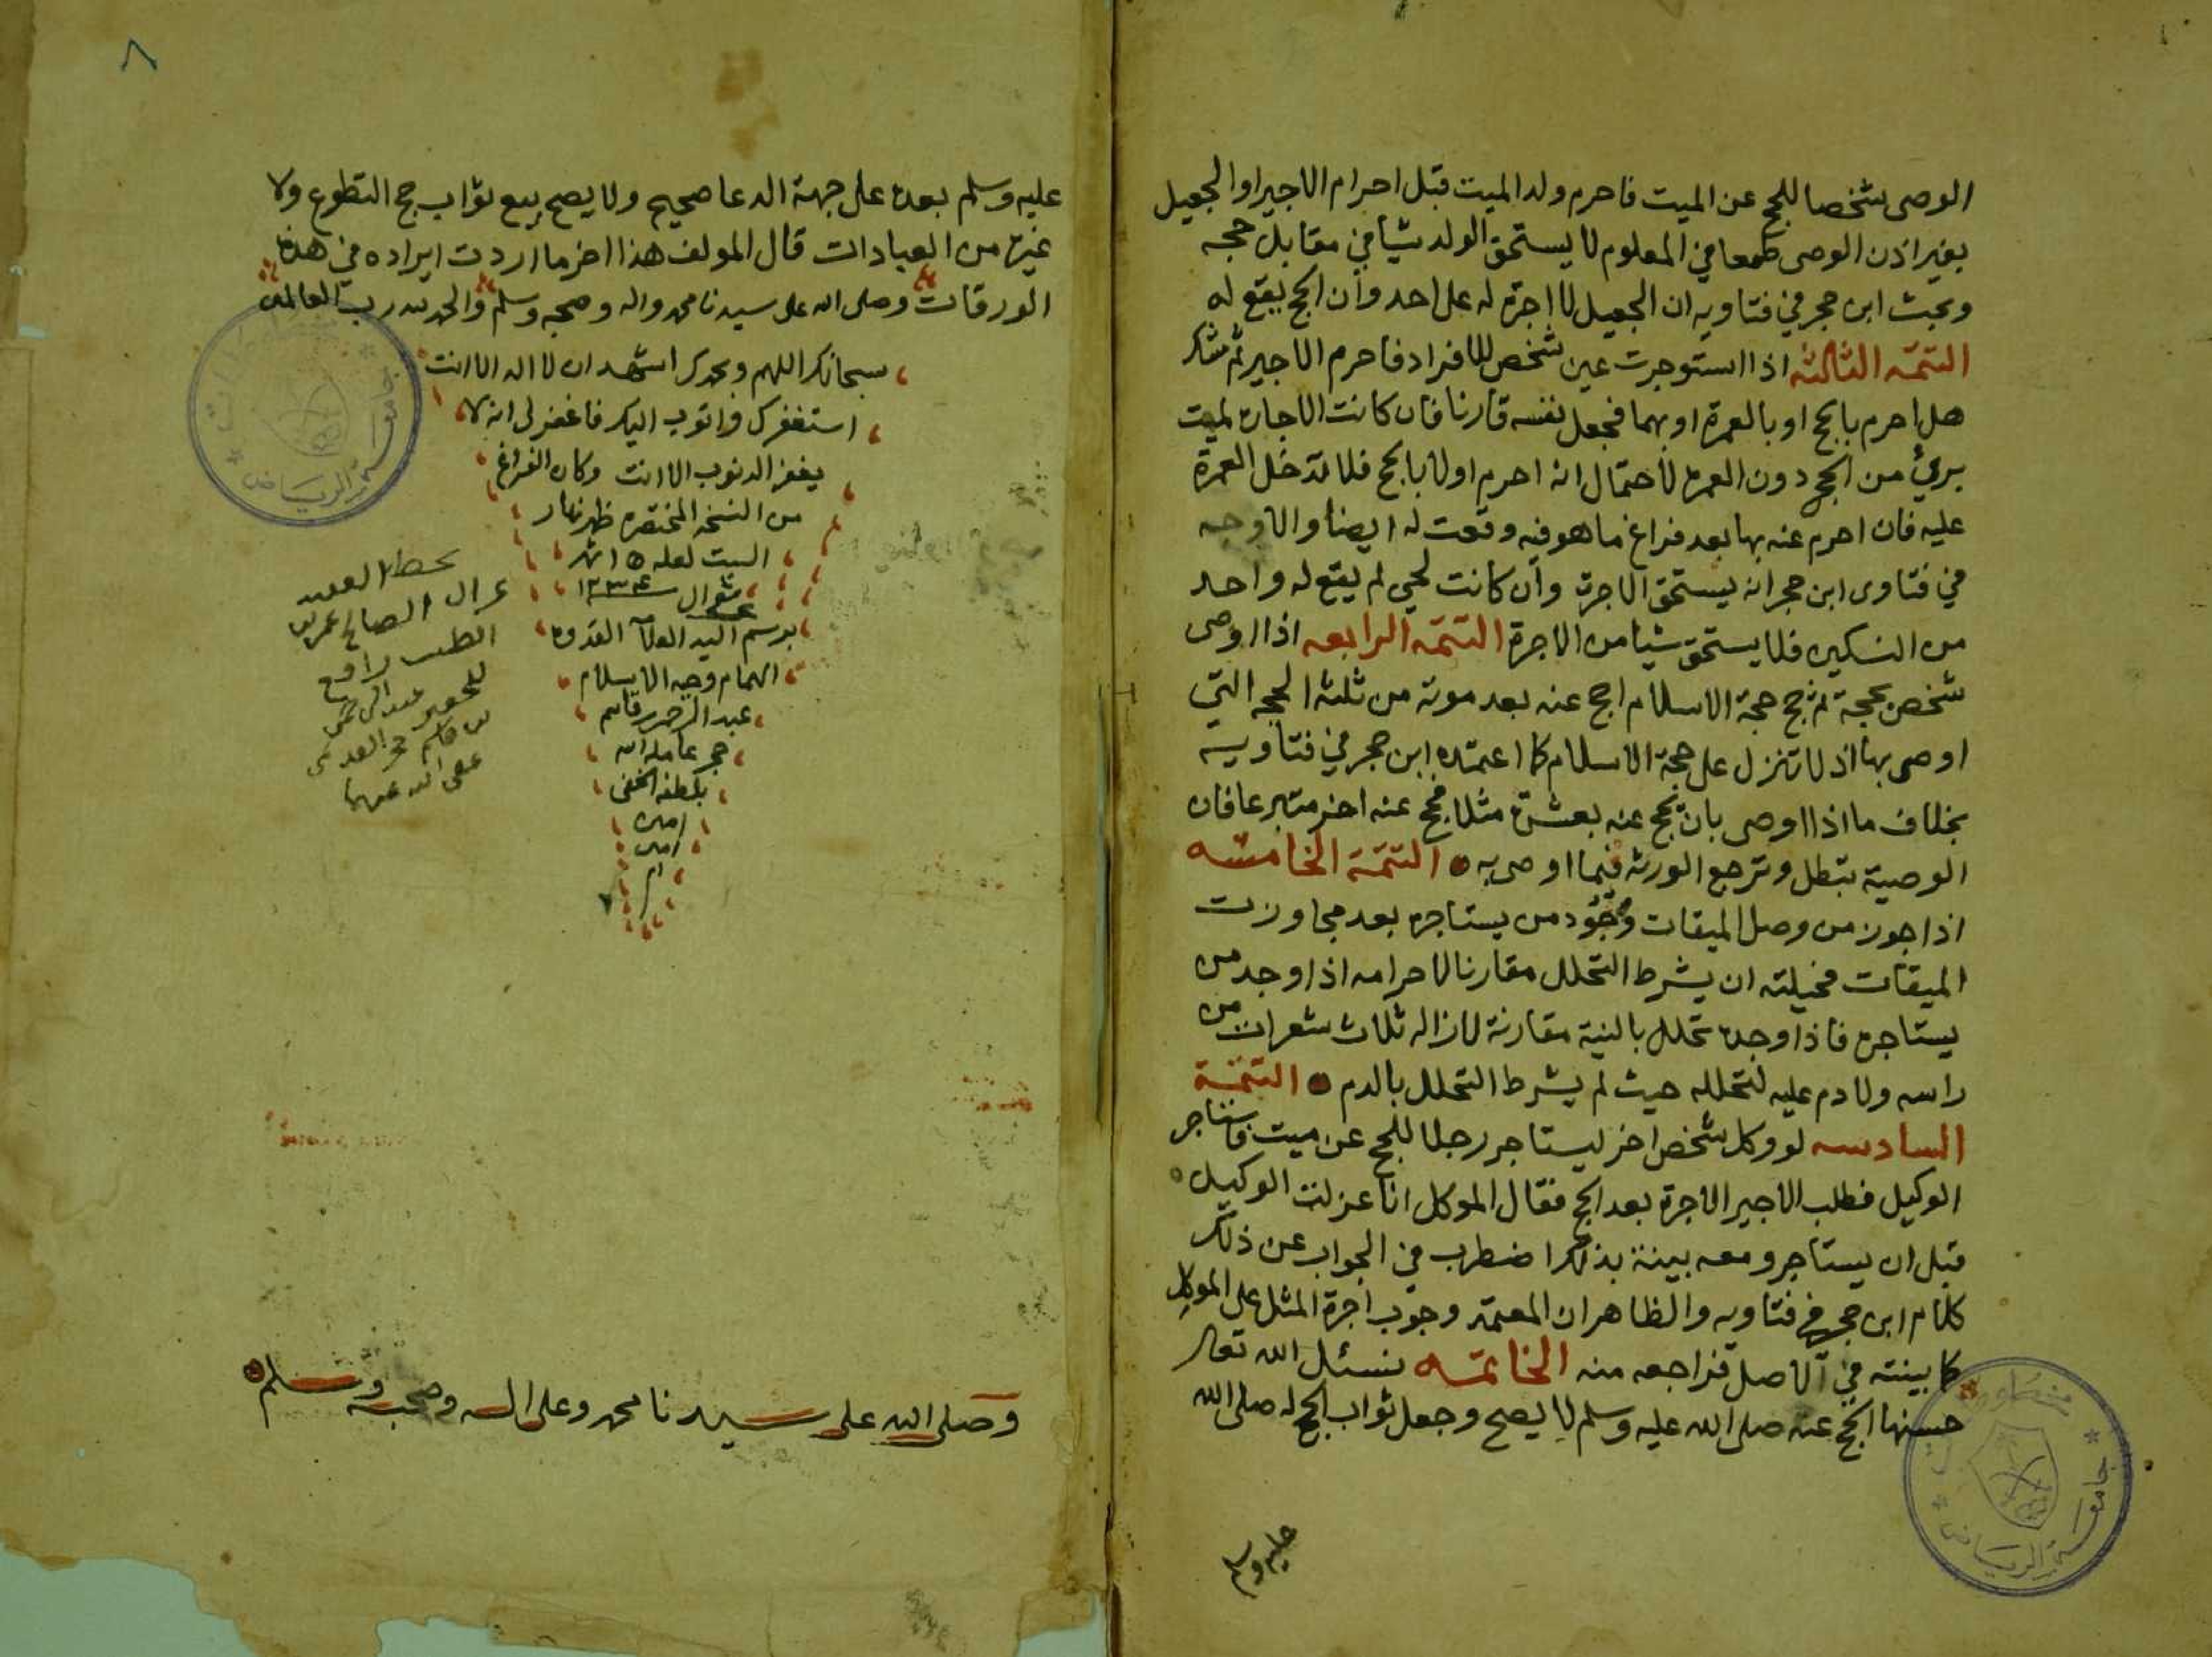 الوصى شخصا للحج عن الميت فاحرم ولد الميت قبل احرام الاجير او الجعيل
بغير اذن الوصى طمعا في المعلوم لا يستحق الولد شيا في مقابل حجه
وبحث ابن حجر في فتاويه ان الجعيل لا اجرة له على احد وان الحج يقع له
التتمة الثالثه اذا استوجرت عين شخص للافراد فاحرم الاجير ثم شك
هل احرم بالحج او بالعمرة او بهما فجعل نفسه قارنا فان كانت الاجارة لميت
برئ من الحج دون العمرة لاحتمال انه احرم اولا بالحج فلا تدخل العمرة
عليه فان احرم عنه بها بعد فراغ ما هو فيه وقعت له ايضا والاوجه
في فتاوى ابن حجر انه يستحق الاجرة وان كانت لحي لم يقع له واحد
من النسكين فلا يستحق شيا من الاجرة التتمه الرابعه اذا اوصى
شخص بحجة ثم حج حجة الاسلام احج عنه بعد موته من ثلثه الحجه التي
اوصى بها اذ لا تنزل على حجة الاسلام كما اعتمده ابن حجر في فتاويه
بخلاف ما اذا اوصى بان يحج عنه بعشرة مثلا فحج عنه اخر متبرعا فان
الوصية تبطل وترجع الورثه فيما اوصى به التتمة الخامسه
اذا جوز من وصل الميقات وجود من يستاجره بعد مجاوزت
الميقات فحيلته ان يشرط التحلل مقارنا لاحرامه اذا وجد من
يستاجره فاذا وجده تحلل بالنية مقارنة لازاله ثلاث شعرات من
راسه ولا دم عليه لتحلله حيث لم يشرط التحلل بالدم التتمة
السادسه لو وكل شخص اخر ليستاجر رجلا للحج عن ميت فاستاجر
الوكيل فطلب الاجير الاجرة بعد الحج فقال الموكل انا عزلت الوكيل
قبل ان يستاجر ومعه بينة بذلك اضطرب في الجواب عن ذلك
كلام ابن حجر في فتاويه والظاهر ان المعتمد وجوب اجرة المثل على الموكل
كما بينته في الاصل فراجعه منه الخاتمه نسئل الله تعالى
حسنها الحج عنه صلى الله عليه وسلم لا يصح وجعل ثواب الحج له صلى الله
عليه وسلم
٨
عليه وسلم بعده على جهة الدعا صحيح ولا يصح بيع ثواب حج التطوع ولا
غيره من العبادات قال المولف هذا اخر ما اردت ايراده في هذه
الورقات وصلى الله على سيدنا محمد واله وصحبه وسلم والحمد لله رب العالمين
سبحانك اللهم وبحمدك اشهد ان لا اله الا انت
استغفرك واتوب اليك فاغفر لى انه لا
يغفر الذنوب الا انت وكان الفراغ
من النسخه المختصره ظهر نهار
السبت لعله ١٥ شهر
شوال سنه ١٢٣٤
برسم السيد العلآ القدوه
الهمام وجيه الاسلام
عبد الرحمن قاسم
حجر عامله الله
بلطفه الخفي
امين
امين
ام
بخط
الصالح عمر بن
للحقير عبد الرحمن
بن قاسم حجر
عفى الله عنهما
وصلى الله على سيدنا محمد وعلى اله وصحبه وسلم
جامعة الرياض
جامعة الرياض